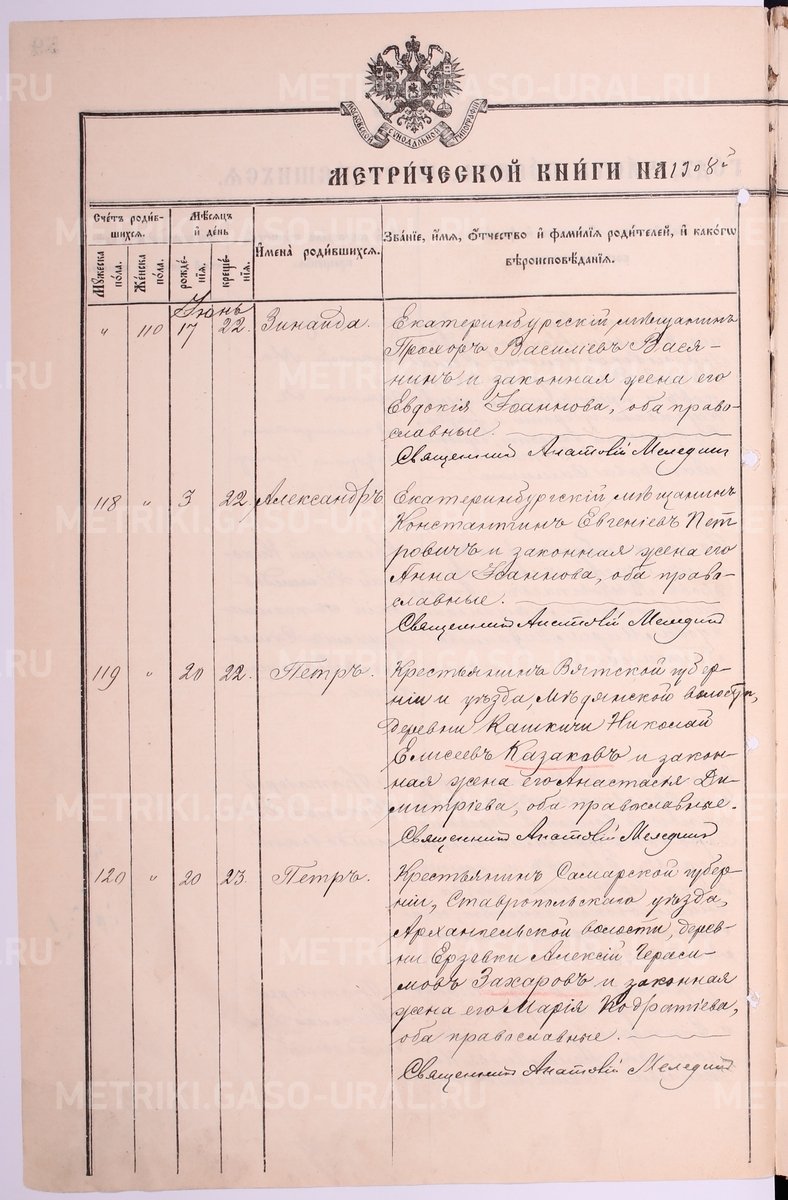 МОСКОВСКОЙ СѴНОДАЛЬНОЙ ТИПОГРАФІИ
МЕТРИ́ЧЕСКОЙ КНИ́ГИ НА 1908й
Сче́тъ роди́в-
шихся.
Мѣ́сяцъ
и҆ де́нь
И҆мена̀ роди́вшихся.
Зва́ніе, и҆́мя, ѻ҆́тчество и҆ фами́лія роди́телей, и҆ како́гѡ
вѣроисповѣ́данія.
Му́жеска
по́ла.
Же́нска
по́ла.
рожде́-
нія.
креще́-
нія.
Іюнь
" 110 17 22. Зинаида. Екатеринбургскій мѣщанинъ
Прохоръ Василіевъ Вася-
нинъ и законная жена его
Евдокія Іоаннова, оба право-
славные.
Священникъ Анатолій Меледин
118 " 3 22. Александръ Екатеринбургскій мѣщанинъ
Константинъ Евгеніевъ Пет
ровичъ и законная жена его
Анна Іоаннова, оба право-
славные.
Священникъ Анатолій Меледин
119 " 20 22. Петръ. Крестьянинъ Вятской губер-
ніи и уѣзда, Мѣдянской волости,
деревни Кашкичи Николай
Елисеевъ Казаковъ и закон-
ная жена его Анастасія Ди-
митріева, оба православные.
Священникъ Анатолій Меледин
120 " 20 23. Петръ. Крестьянинъ Самарской губер-
ніи, Ставропольскаго уѣзда,
Архангельской волости, дерев-
ни Ерзовки Алексій Гераси-
мовъ Захаровъ и законная
жена его Марія Кодратіева,
оба православные.
Священникъ Анатолій Меледин
METRIKI.GASO-URAL.RU